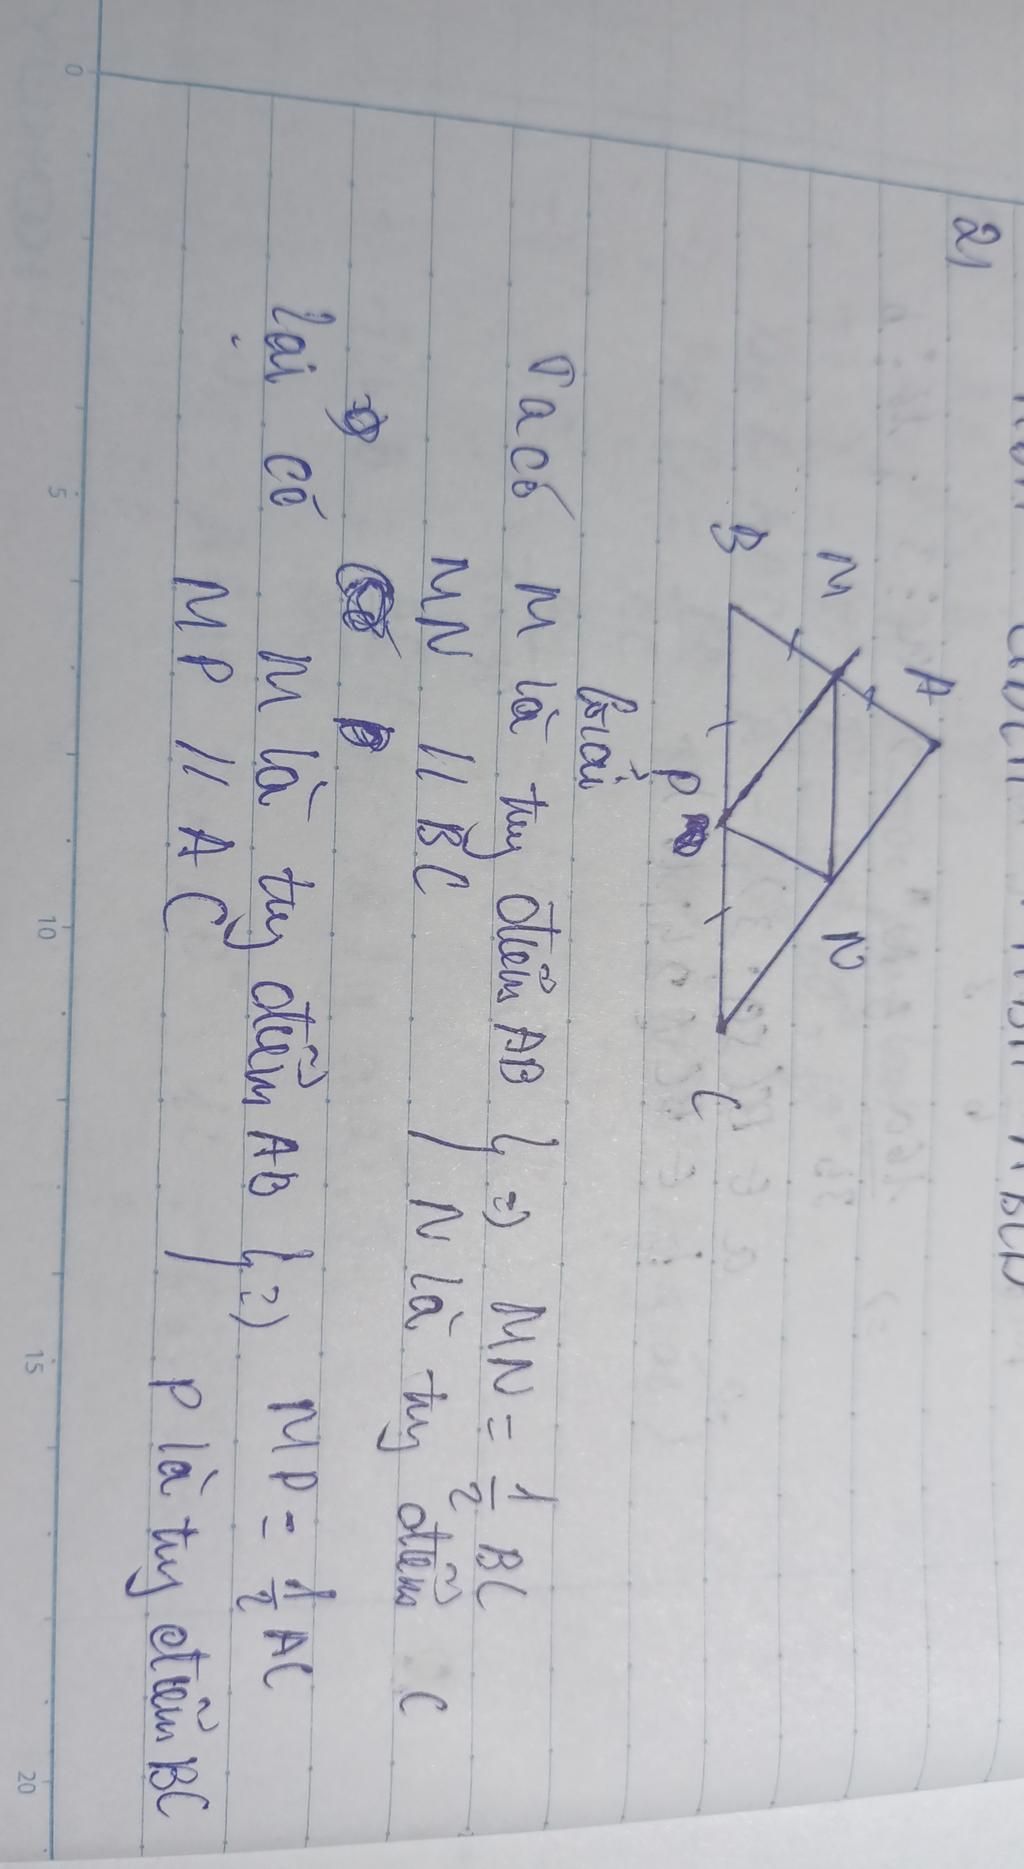 2)
A
M
N
B
P
C
Giải
Ta có M là tny điểm AB } => MN = 1/2 BC
MN // BC N là tny điểm C
lại có M là tny điểm AB } => MP = 1/2 AC
MP // AC P là tny điểm BC
0 5 10 15 20